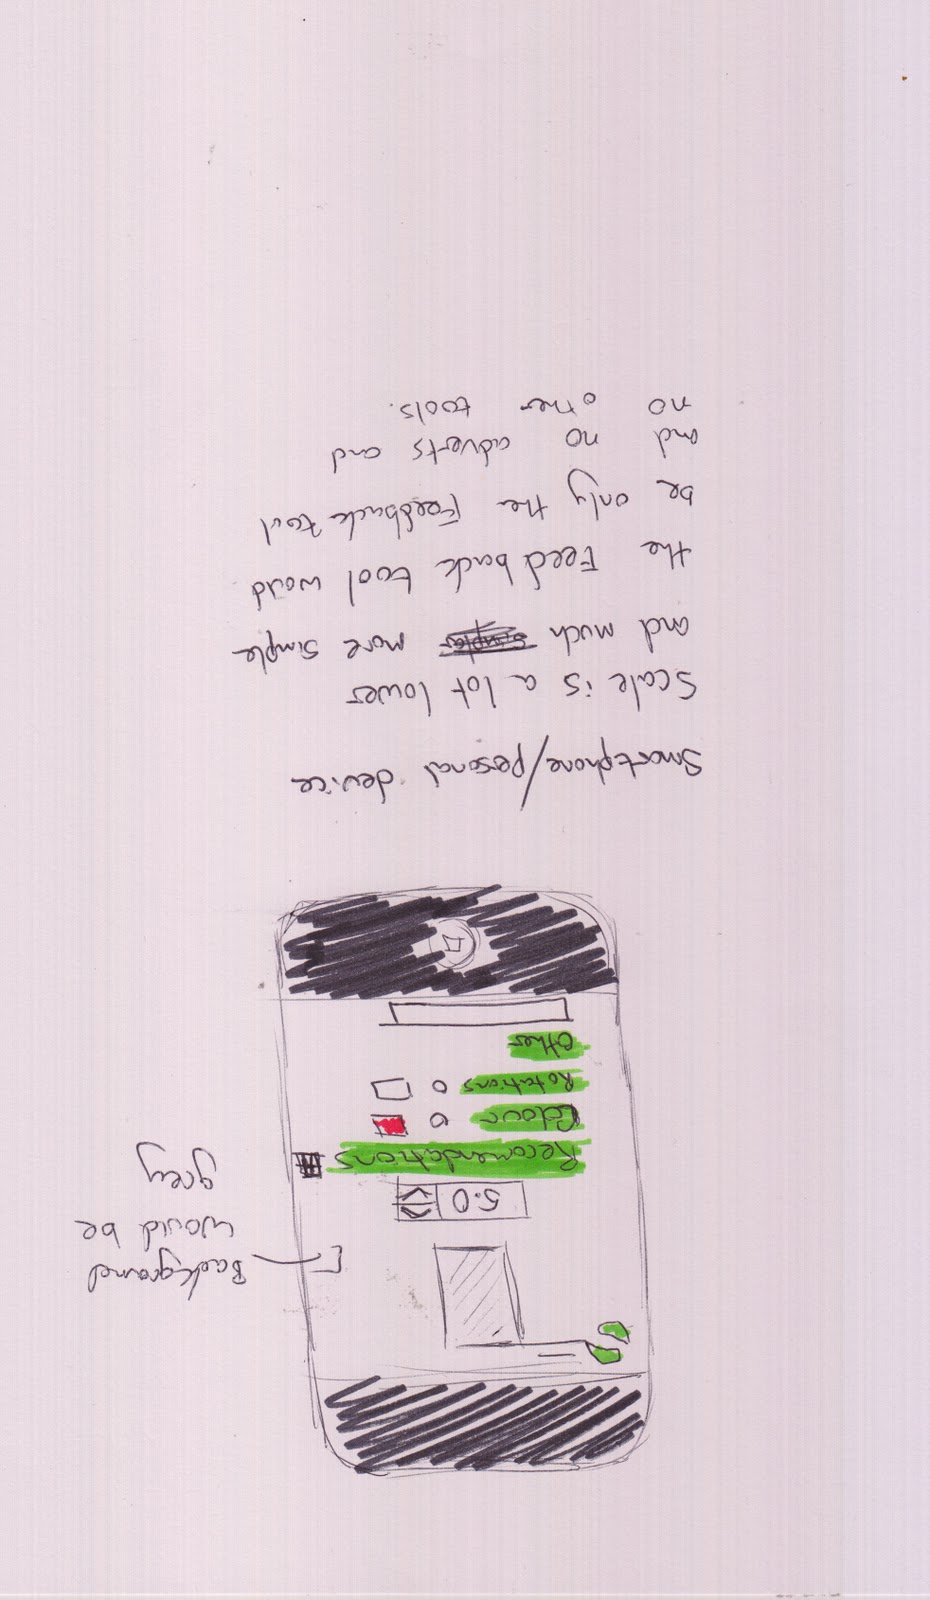 Background
would be
grey
5.0
Recomendations
Colour
Rotations
Other
Smartphone/pesonal device
Scale is a lot lower
and much simpler more simple
the Feedback tool would
be only the Feedback tool
and no adverts and
no other tools.